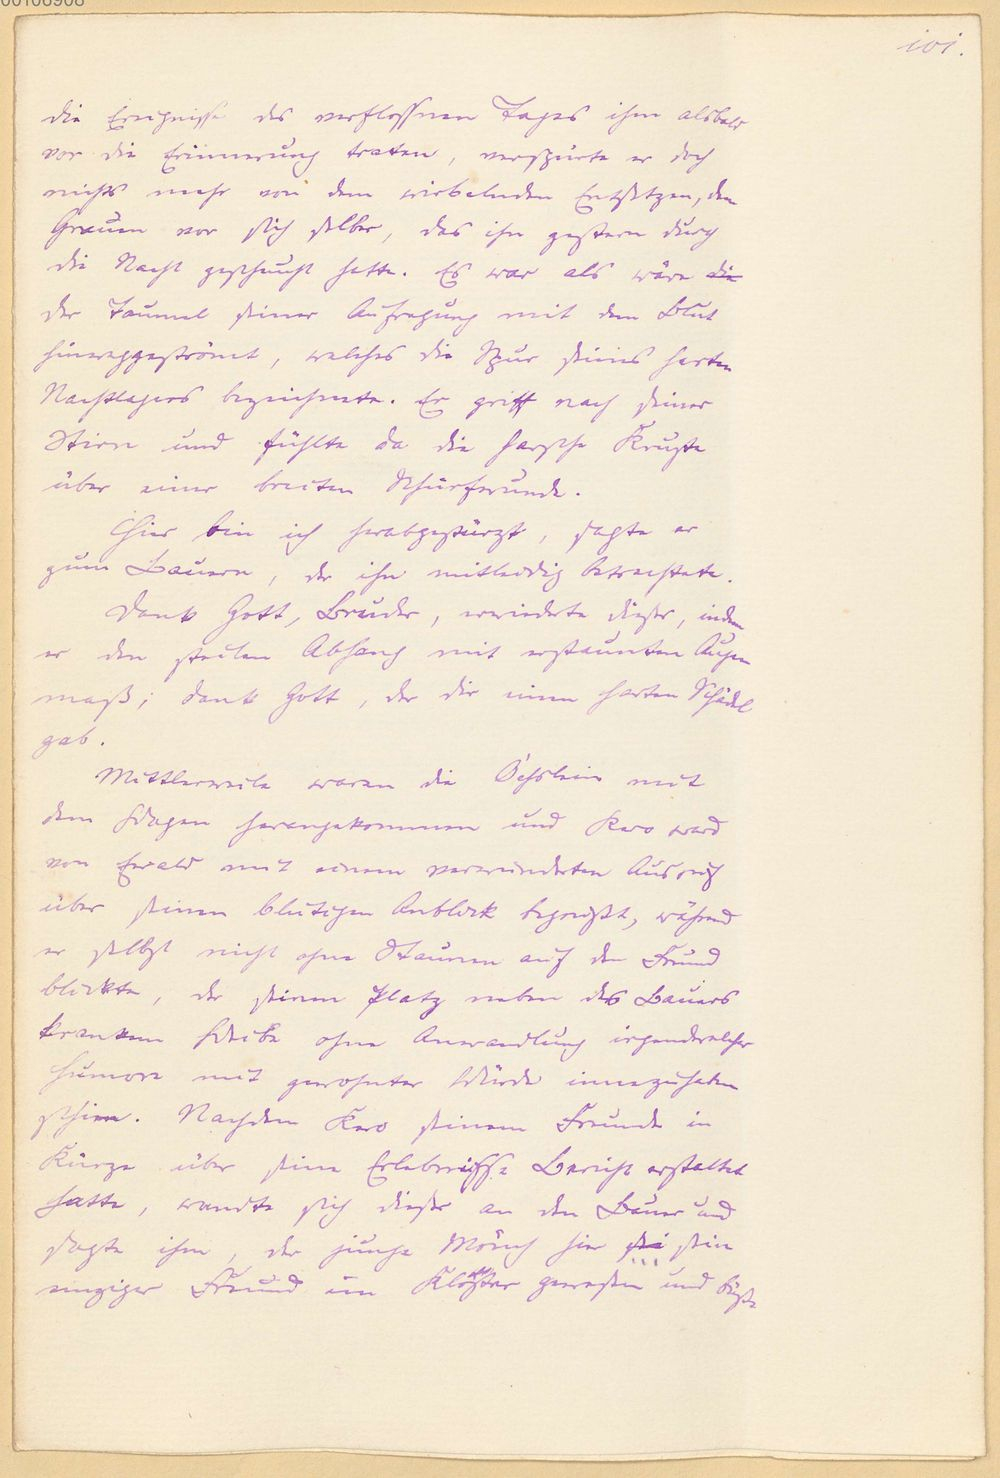 00106908
101.
die Ereignisse des verflossnen Tages ihm alsbald
vor die Erinnerung traten, verspürte er doch
nichts mehr von dem wirbelnden Entsetzen, dem
Grauen vor sich selber, das ihn gestern durch
die Nacht gescheucht hatte. Es war als wäre die
der Taumel seiner Aufregung mit dem Blut
hinweggeströmt, welches die Spur seines harten
Nachtlagers bezeichnete. Er griff nach seiner
Stirn und fühlte da die harsche Kruste
über einer breiten Schürfwunde.
Hier bin ich herabgestürzt, sagte er
zum Bauern, der ihn mitleidig betrachtete.
Dank Gott, Bruder, erwiederte dieser, indem
er den steilen Abhang mit erstaunten Augen
maß; dank Gott, der dir einen harten Schädel
gab.
Mittlerweile waren die Öchslein mit
dem Wagen herangekommen und Kero ward
von Ewald mit einem verwunderten Ausruf
über seinen blutigen Anblick begrüßt, während
er selbst nicht ohne Staunen auf den Freund
blickte, der seinen Platz neben des Bauers
krankem Weibe ohne Anwandlung irgendwelcher
Humore mit gewohnter Würde innezuhaben
schien. Nachdem Kero seinem Freunde in
Kürze über seine Erlebnisse Bericht erstattet
hatte, wandte sich dieser an den Bauer und
sagte ihm, der junge Mönch hier sei sein
einziger Freund im Kloster gewesen und